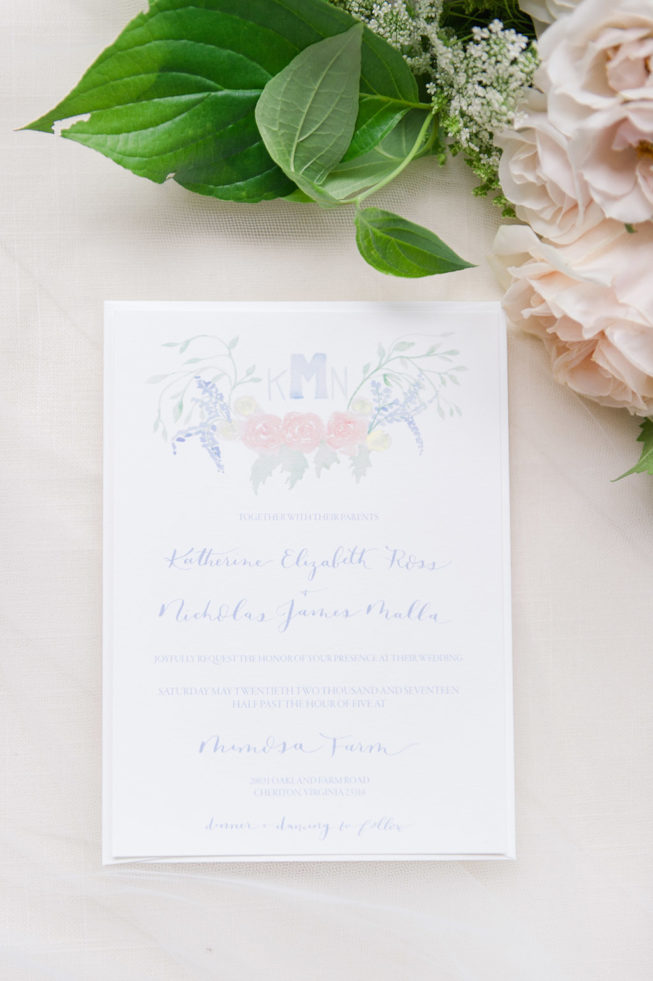 K M N
TOGETHER WITH THEIR PARENTS
Katherine Elizabeth Ross
+
Nicholas James Malla
JOYFULLY REQUEST THE HONOR OF YOUR PRESENCE AT THEIR WEDDING
SATURDAY MAY TWENTIETH TWO THOUSAND AND SEVENTEEN
HALF PAST THE HOUR OF FIVE AT
Mimosa Farm
OAKLAND FARM ROAD
CHERITON, VIRGINIA
dinner + dancing to follow